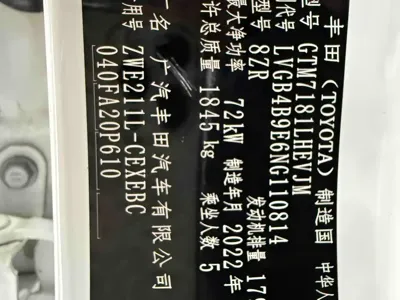 丰田 (TOYOTA) 制造国 中华人
型号 GTM7181LHEVJM
代号 LVGB4B9E6NG110814
型号 8ZR 发动机排量 179
最大净功率 72kW 制造年月 2022年
许总质量 1845kg 乘坐人数 5
名 广汽丰田汽车有限公司
油号 ZWE211L-CEXEBC
040FA20P610